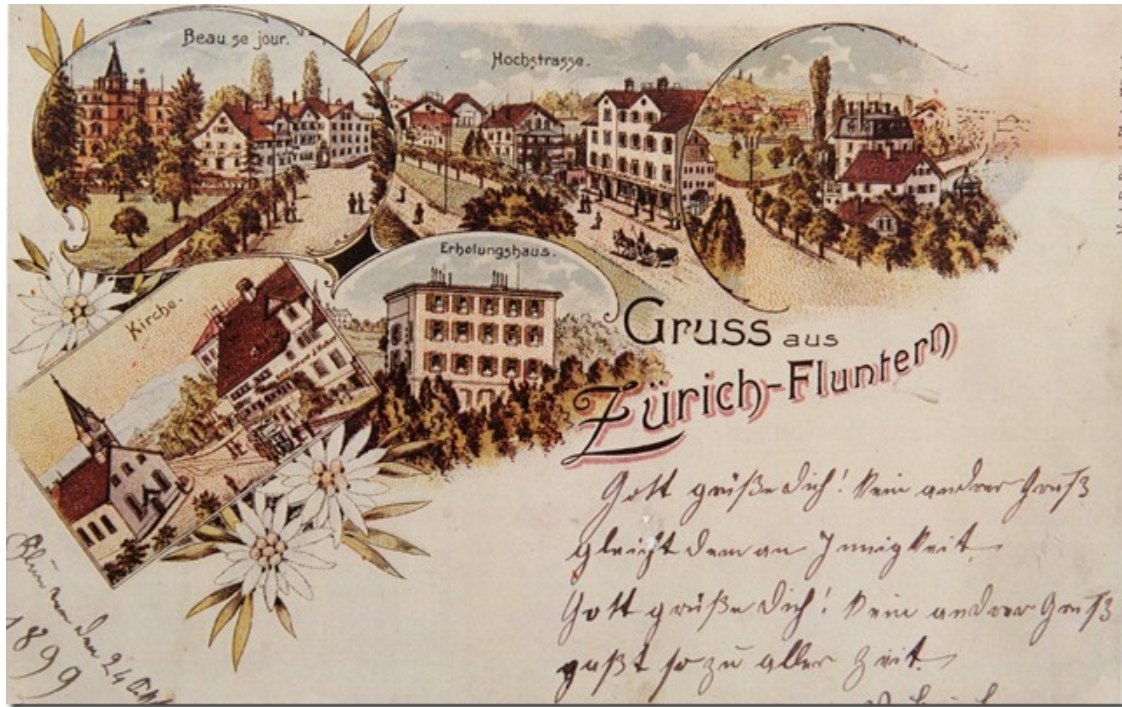 Beau se jour.
Hochstrasse.
Erholungshaus.
Kirche.
Gruss aus
Zürich-Fluntern
Gott grüße Dich! Kein andrer Gruß
gleicht dem an Innigkeit
Gott grüße Dich! Kein andrer Gruß
paßt so zu aller Zeit.
den 24
1899